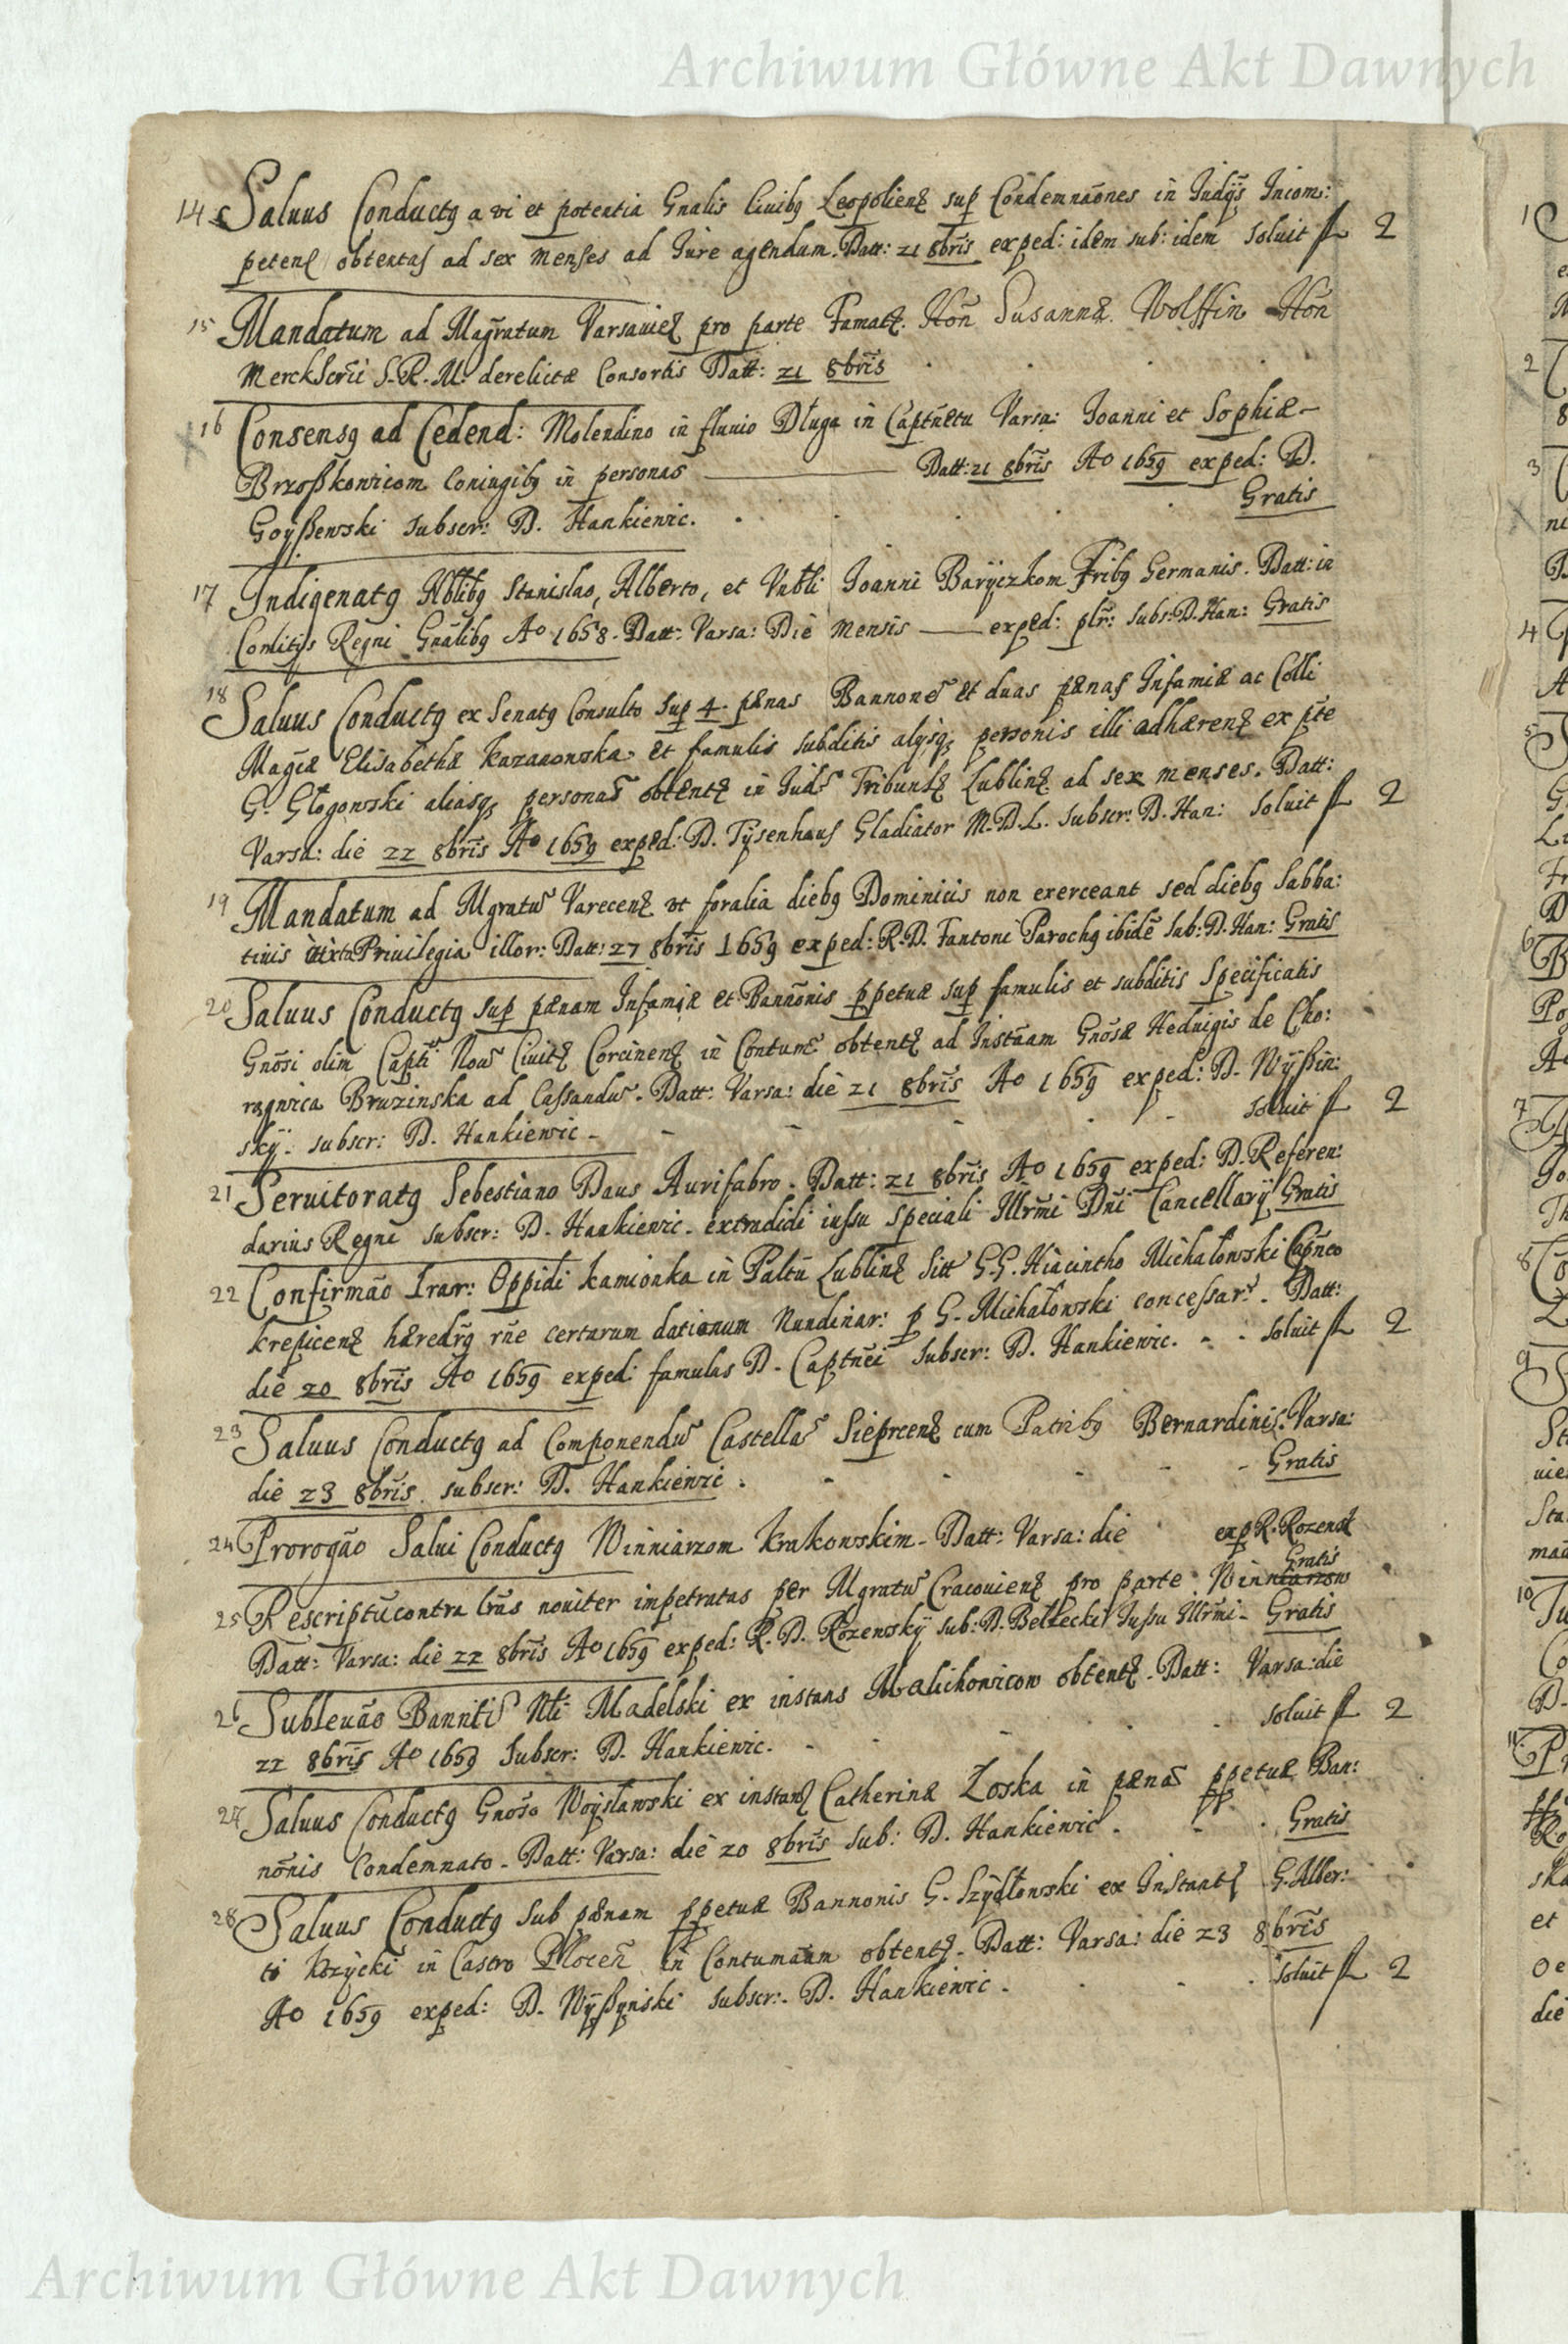 Archiwum Główne Akt Dawnych
14 Saluus Conductq a vi et potentia Gnalis Ciuibq Leopolienz sup Condemnāones in Iudijs Incom:
petenz obtentas ad sex menses ad Iure agendum. Datt: 21 8brīs exped: idem sub: idem soluit fl 2
15 Mandatum ad Magr̄atum Varsauiēz pro parte Famatz. Hon̄ Susannæ Wolffin Hon̄
S. R. M. derelictæ Consortis Datt: 21 8brīs
16 Consensq ad Cedend: Molendino in fluuio Długa in Captn̄etu Varsa: Ioanni et Sophiæ
Brzoßkowicom Coniugibq in personas Datt: 21 8brīs Aº 1659 exped: D.
Goyßewski subscr: D. Hankiewic. Gratis
17 Indigenatq Nb̄libq Stanislao, Alberto, et Ioanni Baryczkom Fribq Germanis. Datt: in
Comitijs Regni Gnālibq Aº 1658. Datt: Varsa: Die mensis exped: plr̄: subs: D. Han: Gratis
18 Saluus Conductq ex Senatq Consulto sup 4. pænas Bannone͂ et duas pænas Infamiæ ac Colli
Magcæ Elisabethæ Kazanowska et famulis subditis alysq; personis illi adhærenz ex pt̄e
G. Głogowski aliasq; persona͂s obtentz in Iud͂ Tribunlz Lublinz ad sex menses. Datt:
Varsa: die 22 8brīs Aº 1659 exped: D. Tysenhaus Gladiator M. D. L. subscr: D. Han: soluit fl 2
19 Mandatum ad Mgratu͂ Varecenz vt foralia diebq Dominicis non exerceant sed diebq Sabba:
tinis iuxta Priuilegia illor: Datt: 27 8brīs 1659 exped: R. D. Fantoni Parochq ibidē sub: D. Han: Gratis
20 Saluus Conductq sup pænam Infamiæ et Bannōnis ppetuæ sup famulis et subditis Specificatis
Gnōsi olim Capti Nou͂ Ciuitz Corcinenz in Contum͂ obtentz ad Instāam Gnōsæ Heduigis de Cho:
rągwica Bruzinska ad Cassandu͂. Datt: Varsa: die 21 8brīs Aº 1659 exped: D. Wyßin:
skÿ. subscr: D. Hankiewic. soluit fl 2
21 Seruitoratq Sebestiano Daus Aurifabro. Datt: 21 8brīs Aº 1659 exped: D. Referen:
darius Regni subscr: D. Hankiewic. extradidi iussu speciali Illr̄mi Dn̄i Cancellarÿ Gratis
22 Confirmāo Lrar: Oppidi Kamionka in Paltū Lublinz Sitt G. G. Hiacintho Michałowski Capn̄eo
Krepicenz hæredr̄q rn̄e certarum dationum Nundinar: p G. Michałowski concessar͂. Datt:
die 20 8brīs Aº 1659 exped: famulus D. Captn̄ei subscr: D. Hankiewic. soluit fl 2
23 Saluus Conductq ad Componendu͂ Castella͂ Sieprcenz cum Patribq Bernardinis. Varsa:
die 23 8brīs. subscr: D. Hankiewic. Gratis
24 Prorogāo Salui Conductq Winniarzom Krakowskim. Datt: Varsa: die exp R. Rozensk
Gratis
25 Rescriptū contra Lrās nouiter impetratas per Mgratu͂ Cracouienz pro parte Winniarzow
Datt: Varsa: die 22 8brīs Aº 1659 exped: R. D. Rozenskÿ sub: D. Bełżecki Iussu Illr̄mi. Gratis
26 Subleuāo Bannīti͂ Nli Madelski ex instans Malichowicow obtentz. Datt: Varsa: die
22 8brīs Aº 1659 Subscr: D. Hankiewic. soluit fl 2
27 Saluus Conductq Gnōso Woysławski ex instanz Catherinæ Łoska in pæna͂ ppetuæ Ban:
nōnis Condemnato. Datt: Varsa: die 20 8brīs sub: D. Hankiewic. Gratis
28 Saluus Conductq sub pænam ppetuæ Bannonis G. Szydłowski ex Instantz G. Alber:
ti Kozycki in Castro Płocen̄ in Contumāam obtentz. Datt: Varsa: die 23 8brīs
Aº 1659 exped: D. Wyßynski subscr: D. Hankiewic. soluit fl 2
Archiwum Główne Akt Dawnych